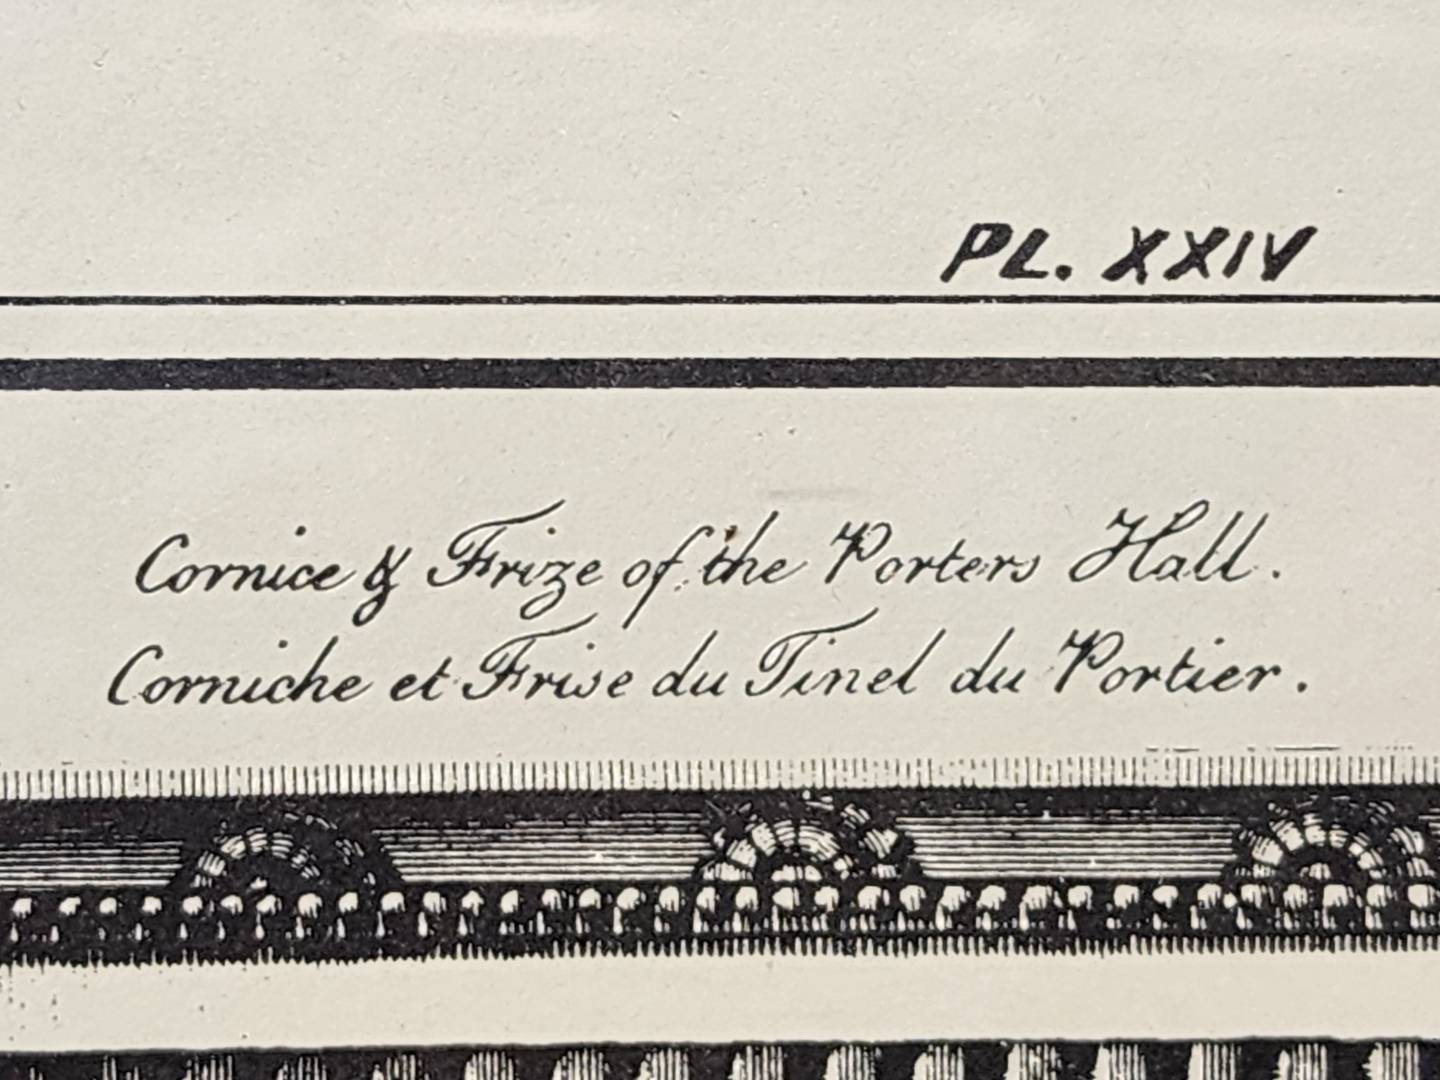 PL. XXIV
Cornice & Frize of the Porters Hall.
Corniche et Frise du Tinel du Portier.